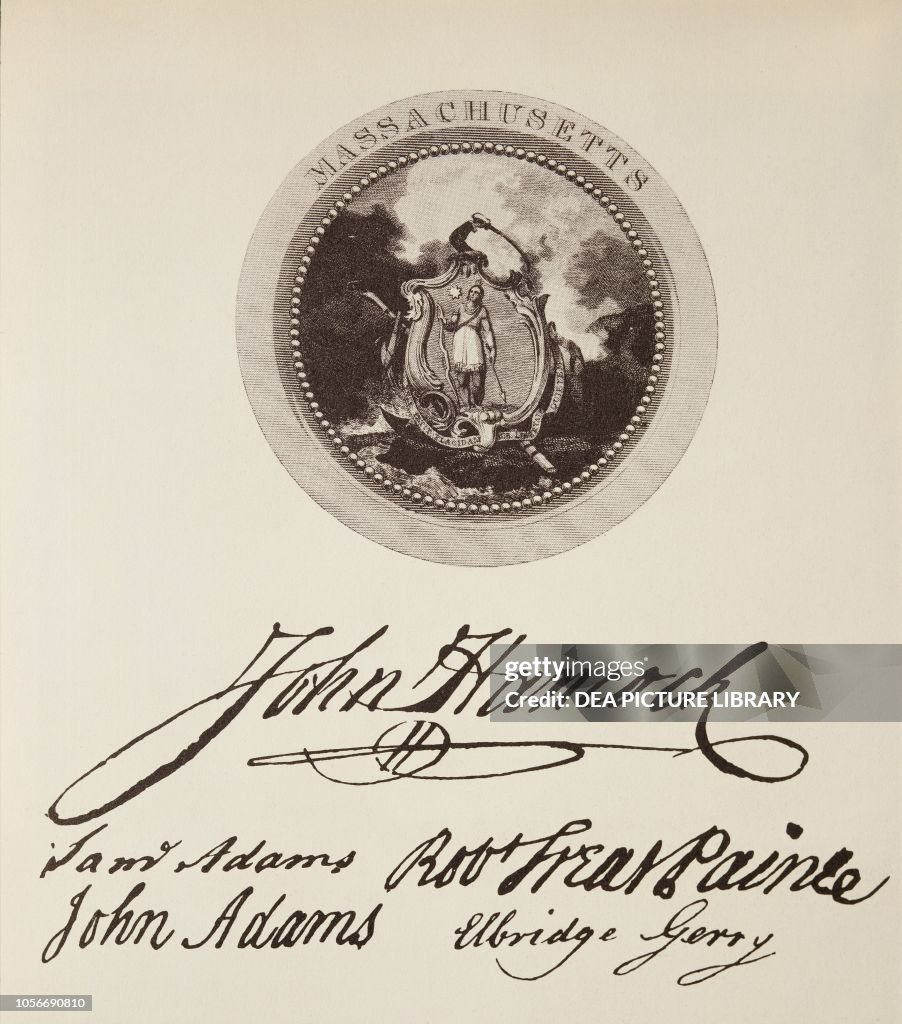 MASSACHUSETTS
PLACIDAM
John Hancock
gettyimages®
Credit: DEA PICTURE LIBRARY
Saml Adams Robt Treat Paine
John Adams Elbridge Gerry
1056690810